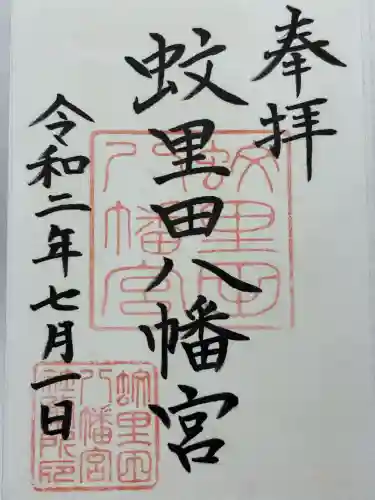 奉拝
蚊里田八幡宮
令和二年七月一日
蚊里田
八幡宮
蚊里田
八幡宮